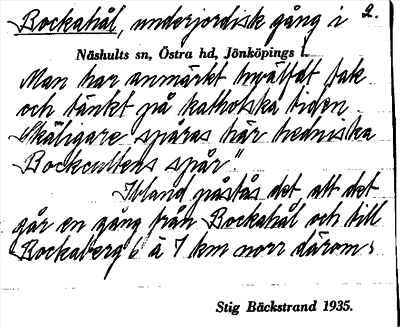 Bockahål, underjordisk gång i 2.
Näshults sn, Östra hd, Jönköpings l.
Man har anmärkt hvälfdt tak
och tänkt på katholska tiden.
Skäligare spåras här hedniska
Bockcultens spår."
Ibland påstås det, att det
går en gång från Bockahål och till
Bockaberg 6 à 7 km norr därom.
Stig Bäckstrand 1935.